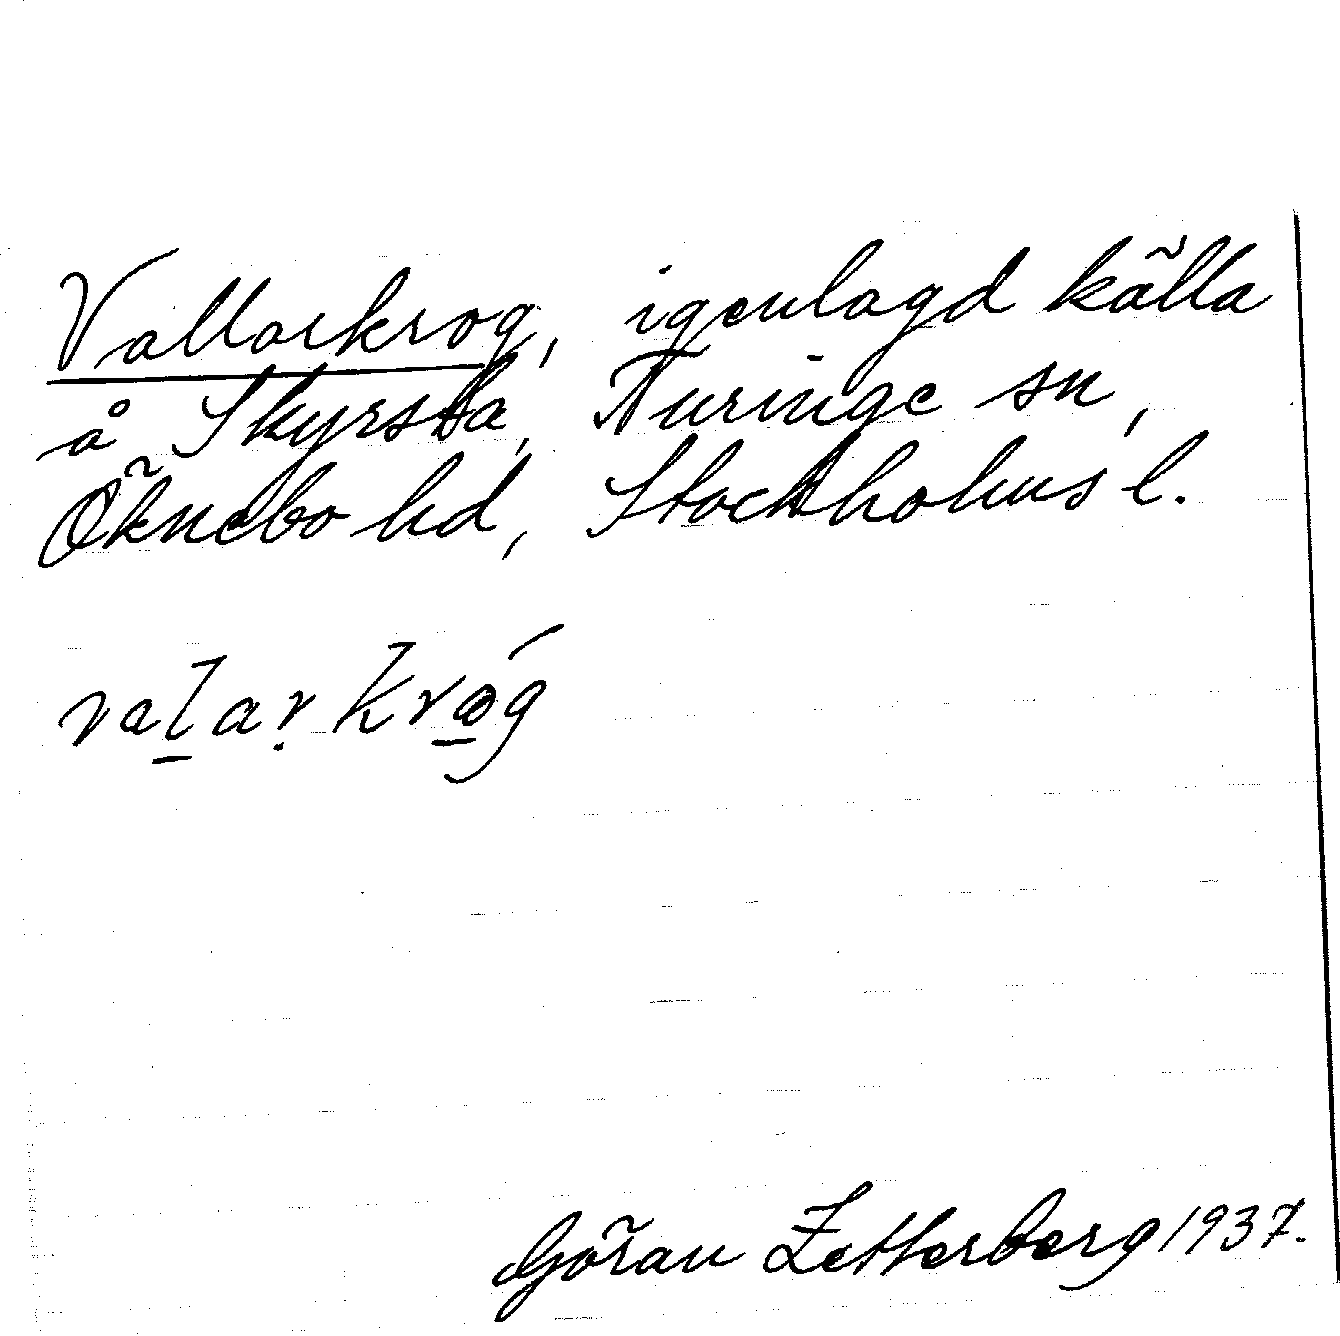 Vallarkrog, igenlagd källa
å Skyrsta, Turinge sn,
Öknebo hd, Stockholms l.
valar krǿg
Göran Zetterberg 1937.